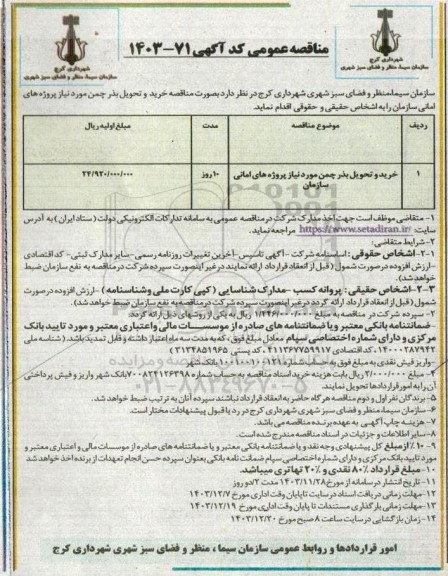 شهرداری کرج
سازمان سیما، منظر و فضای سبز شهری
مناقصه عمومی کد آگهی ۷۱-۱۴۰۳
شهرداری کرج
سازمان سیما، منظر و فضای سبز شهری
سازمان سیما،منظر و فضای سبز شهری شهرداری کرج در نظر دارد بصورت مناقصه خرید و تحویل بذر چمن مورد نیاز پروژه های
امانی سازمان را به اشخاص حقیقی و حقوقی اقدام نماید.
ردیف موضوع مناقصه مدت مبلغ اولیه ریال
۱ خرید و تحویل بذر چمن مورد نیاز پروژه های امانی سازمان ۱۰ روز ۲۴/۹۲۰/۰۰۰/۰۰۰
۱- متقاضی موظف است جهت اخذ مدارک شرکت در مناقصه عمومی به سامانه تدارکات الکترونیکی دولت (ستاد ایران) به آدرس
سایت: https://www.setadiran.ir مراجعه نماید.
۲- شرایط متقاضی:
۲-۱- اشخاص حقوقی : اساسنامه شرکت -آگهی تاسیس -آخرین تغییرات روزنامه رسمی -سایر مدارک ثبتی- کد اقتصادی
-ارزش افزوده در صورت شمول (قبل از انعقاد قرارداد ارائه نمایند در غیر اینصورت سپرده شرکت در مناقصه به نفع سازمان ضبط
خواهد شد.)
۲-۳- اشخاص حقیقی : پروانه کسب -مدارک شناسایی (کپی کارت ملی و شناسنامه) -ارزش افزوده در صورت
شمول (قبل از انعقاد قرارداد ارائه گردد در غیر اینصورت سپرده شرکت در مناقصه به نفع سازمان ضبط خواهد شد.)
۲- سپرده شرکت در مناقصه به مبلغ ۱/۲۴۶/۰۰۰/۰۰۰ ریال به یکی از روشهای ذیل ارائه گردد:
- ضمانتنامه بانکی معتبر و یا ضمانتنامه های صادره از موسسات مالی و اعتباری معتبر و مورد تایید بانک
مرکزی و دارای شماره اختصاصی سپام معادل مبلغ فوق، که به مدت سه ماه اعتبار داشته و قابل تمدید باشد. (شناسه ملی
۱۴۰۰۰۲۸۷۹۴۲ کد اقتصادی ۴۱۱۳۶۷۷۵۹۹۱۷ کد پستی ۳۱۳۴۸۵۱۹۶۵)
-واریز فیش نقدی به مبلغ فوق به حساب شماره بانک شهر
۴- مبلغ ۲/۰۰۰/۰۰۰ ریال بابت هزینه خرید اسناد مناقصه به حساب شماره ۷۰۰۸۲۴۱۲۶۳۹۸ بانک شهر واریز و فیش پرداختی
آن را به امور قراردادها تحویل نمایند.
۵- برندگان نفر اول و دوم مناقصه هرگاه حاضر به انعقاد قرارداد نباشند سپرده آنان به ترتیب ضبط خواهد شد.
۶- سازمان سیما، منظر و فضای سبز شهری شهرداری کرج در رد یا قبول پیشنهادات مختار است.
۷- هزینه چاپ آگهی به عهده برنده مناقصه می باشد.
۸- سایر اطلاعات و جزئیات در اسناد مناقصه مندرج شده است.
۹- ۱۰٪ از مبلغ کل پیشنهادی وجه نقد و یا ضمانتنامه بانکی معتبر و یا ضمانتنامه های صادره از موسسات مالی و اعتباری معتبر و
مورد تایید بانک مرکزی و دارای شماره اختصاصی سپام ضمانت نامه بانکی بعنوان سپرده حسن انجام تعهدات از برنده اخذ خواهد شد
۱۰- مبلغ قرارداد ۸۰٪ نقدی و ۲۰٪ تهاتری میباشد.
۱۱- تاریخ انتشار در سامانه از مورخ ۱۴۰۳/۱۱/۲۸ مدت ۲/دو روز
۱۲- مهلت زمانی دریافت اسناد در سایت تا پایان وقت اداری مورخ ۱۴۰۳/۱۲/۷
۱۳- مهلت زمانی بارگذاری مستندات تا پایان وقت اداری مورخ ۱۴۰۳/۱۲/۱۹
۱۴- زمان بازگشایی در سایت ساعت ۸ صبح مورخ ۱۴۰۳/۱۲/۲۰
امور قراردادها و روابط عمومی سازمان سیما ، منظر و فضای سبز شهری شهرداری کرج
۰۲۱-۸۸۳۴۹۶۷۰-۵